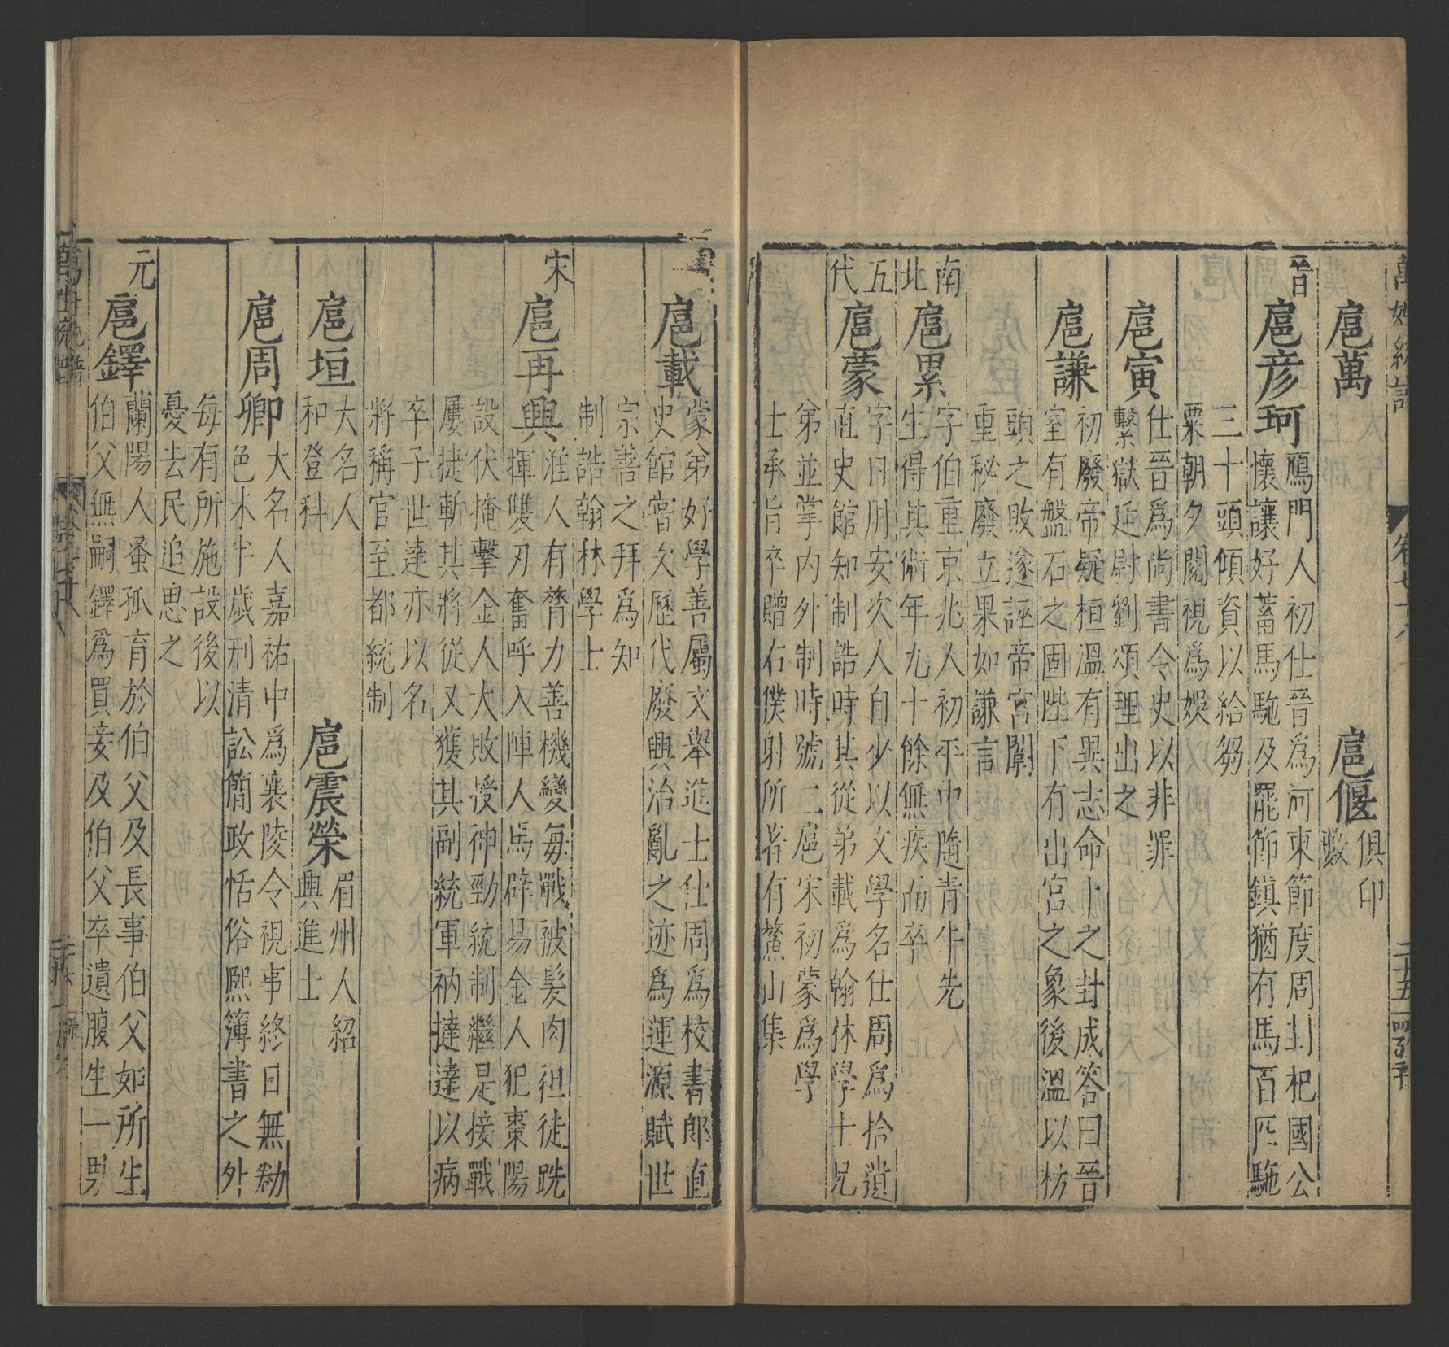 扈萬
扈偃
俱印
數
晉
扈彥珂
鴈門人初仕晉爲河東節度周封杞國公
懷讓好蓄馬駞及罷節鎮猶有馬百匹駞
三十頭傾資以給芻
粟朝夕閱視爲娛
扈寅
仕晉爲尚書令史以非罪
繫獄廷尉劉頌理出之
扈謙
初廢帝疑桓溫有異志命卜之封成答曰晉
室有盤石之固陛下有出宮之象後溫以枋
頭之敗遂誣帝宮闈
重秘廢立果如謙言
南北
扈累
字伯重京兆人初平中隨青牛先
生得其術年九十餘無疾而卒
五代
扈蒙
字日用安次人自少以文學名仕周爲拾遺
直史館知制誥時其從弟載爲翰林學士兄
弟並掌內外制時號二扈宋初蒙爲學
士承旨卒贈右僕射所著有鰲山集
扈載
蒙弟好學善屬文舉進士仕周爲校書郎直
史館嘗久歷代廢興治亂之迹爲運源賦世
宗善之拜爲知
制誥翰林學士
宋
扈再興
淮人有膂力善機變每戰被髮肉袒徒跣
揮雙刃奮呼入陣人馬辟易金人犯棗陽
設伏掩擊金人大敗授神勁統制繼是接戰
屢捷斬其將從又獲其副統軍衲撻達以病
卒子世達亦以名
將稱官至都統制
扈垣
大名人
和登科
扈震榮
眉州人紹
興進士
扈周卿
大名人嘉祐中爲襄陵令視事終日無勌
色未半歲刑清訟簡政恬俗熙簿書之外
每有所施設後以
憂去民追思之
元
扈鐸
蘭陽人蚤孤育於伯父及長事伯父如所生
伯父無嗣鐸爲買妾及伯父卒遺腹生一男